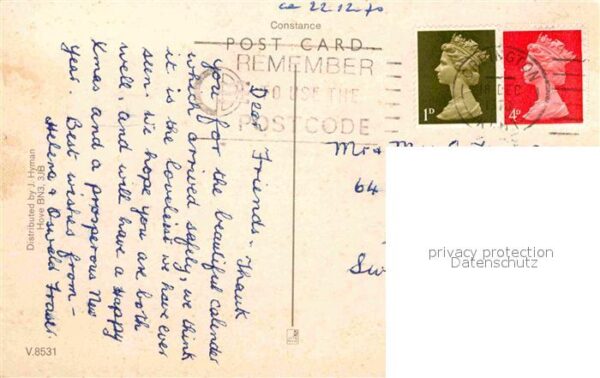 ca 22.12.70
Constance
POST CARD
REMEMBER
TO USE THE
POSTCODE
1D
4D
DEC
Dear Friends - Thank
you for the beautiful calender
which arrived safely, we think
it is the loveliest we have ever
seen. We hope you are both
well, and will have a Happy
Xmas and a prosperous New
Year. Best wishes from -
Helena & Oswald Fraser.
Mr & M
64
Sw
privacy protection
Datenschutz
Distributed by J. Hyman
Hove BN3, 3JB
V.8531